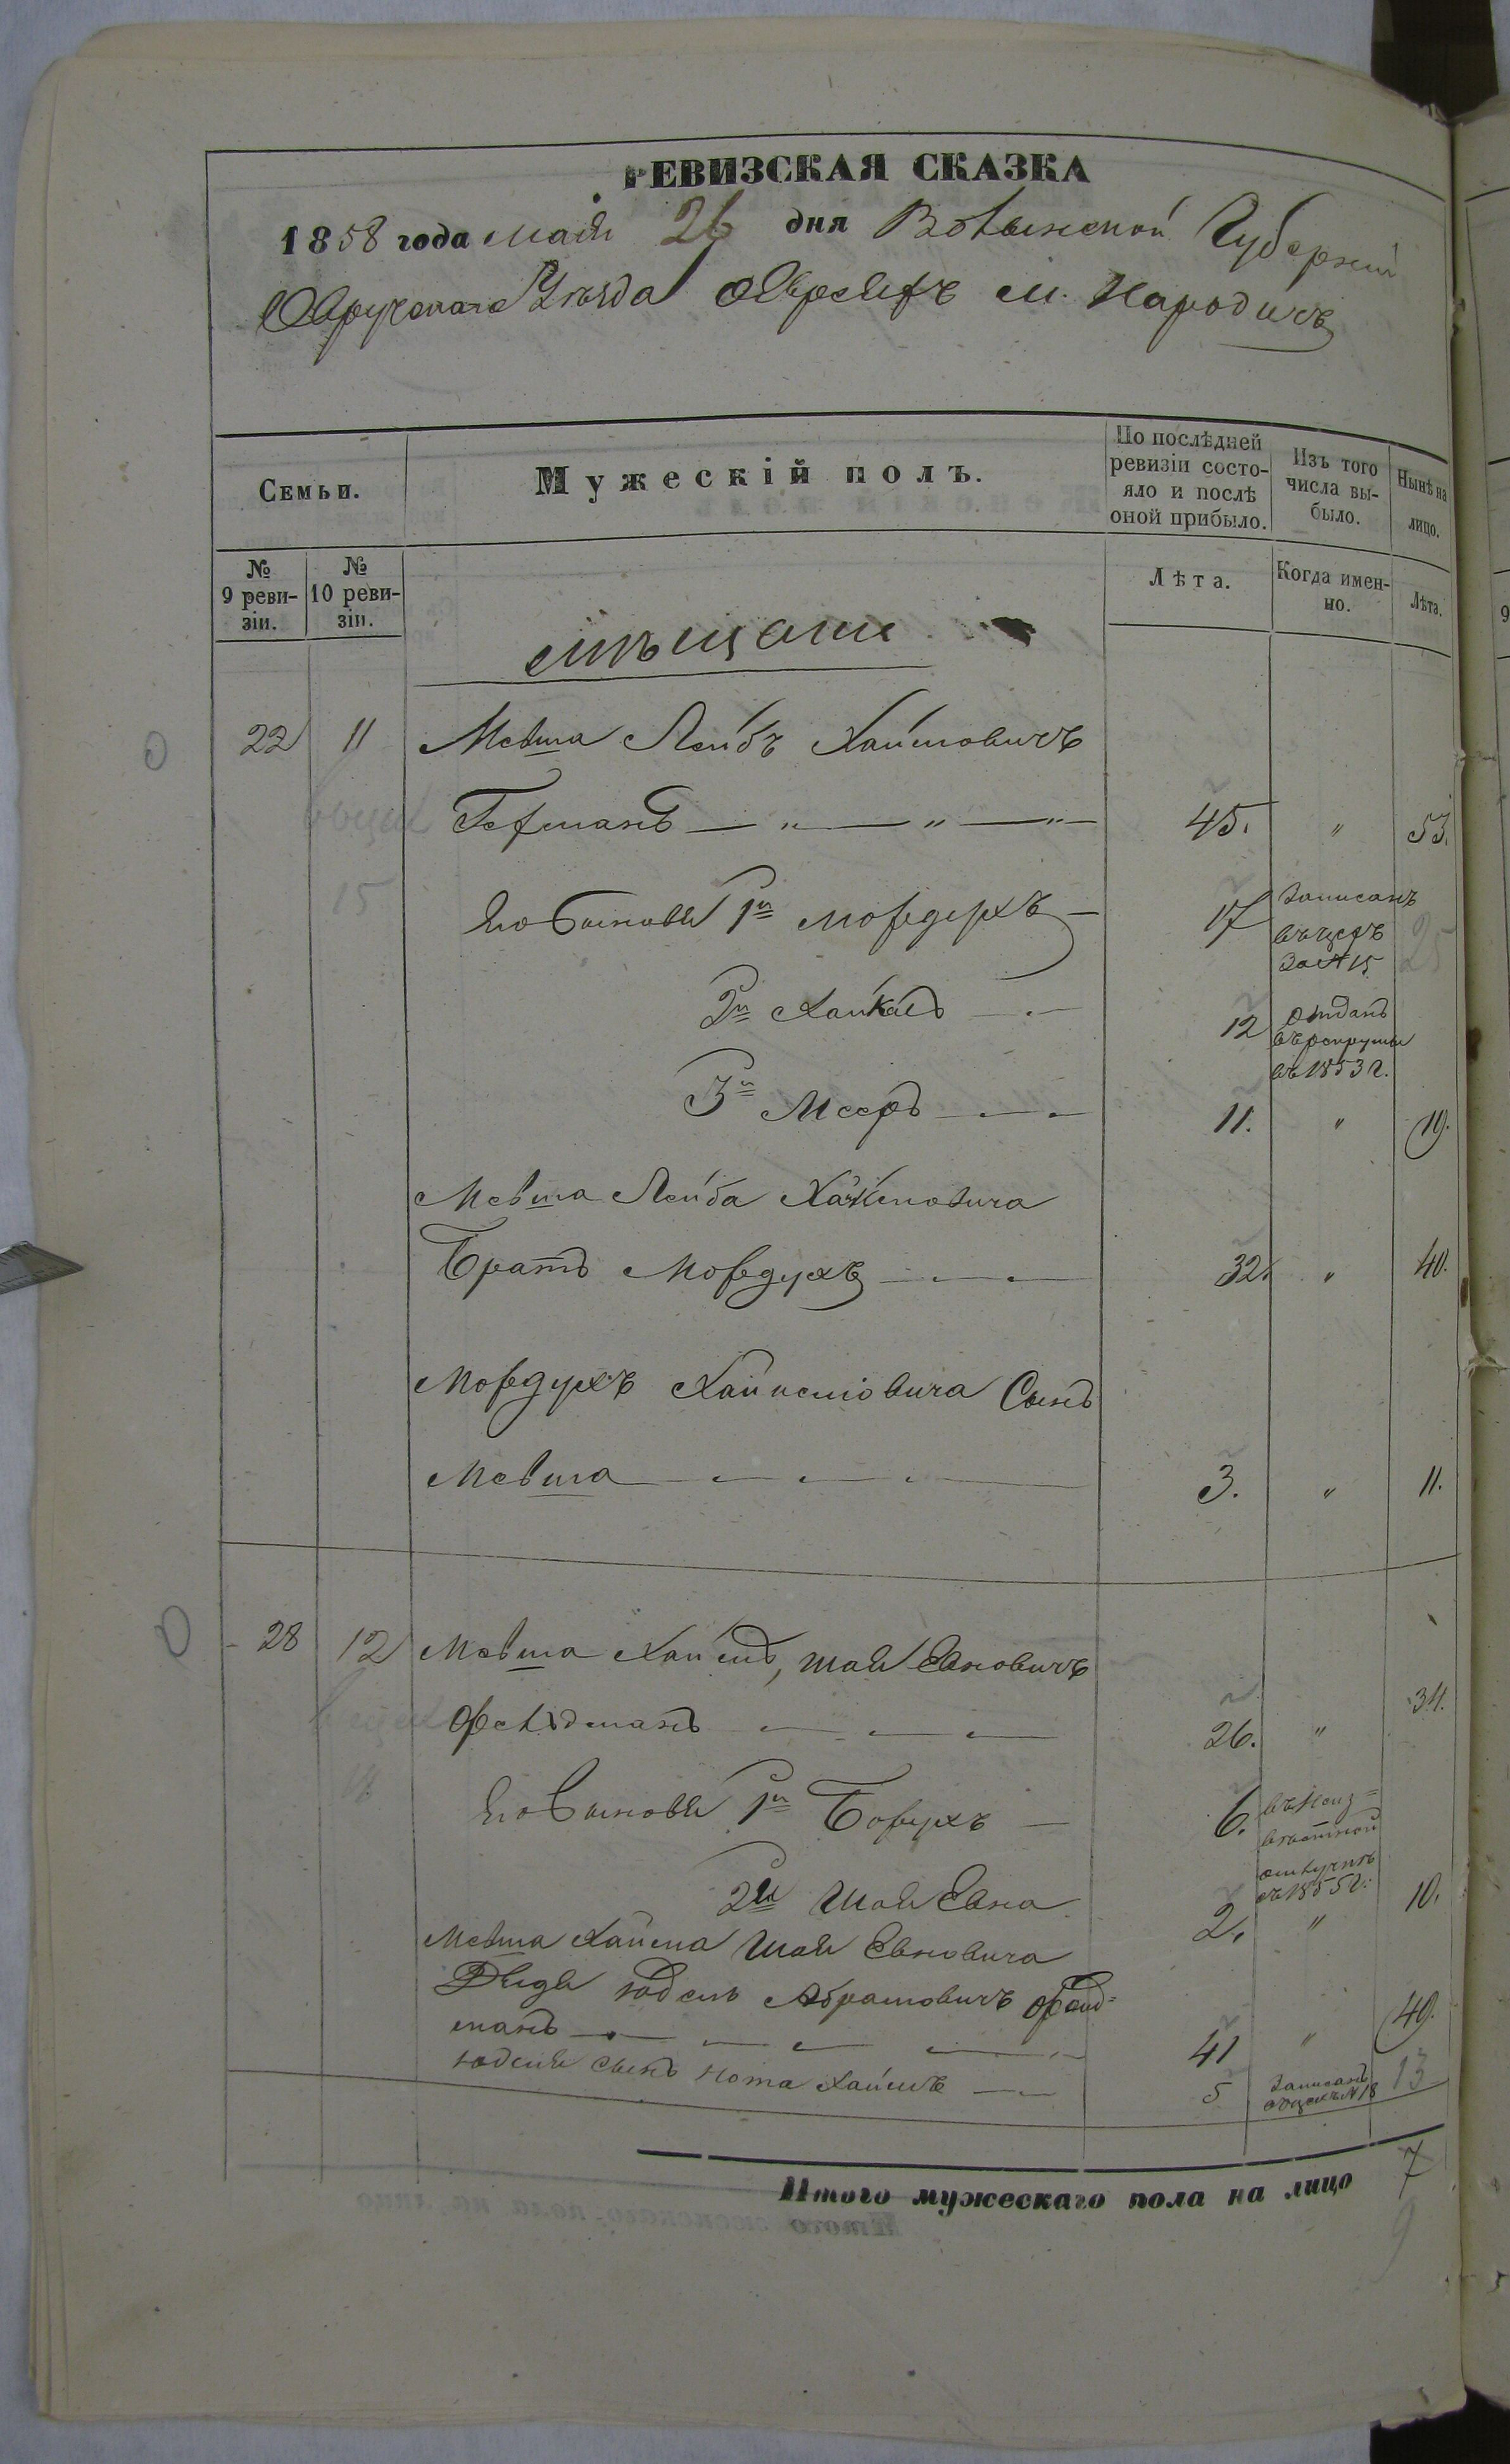 РЕВИЗСКАЯ СКАЗКА
1858 года мая 26 дня Волынской Губерніи
Овручскаго Уезда Овреихъ м. Народичъ
Семьи.
Мужескій полъ.
По послѣдней ревизіи состо-
яло и послѣ
оной прибыло.
Изъ того
числа вы-
было.
Нынѣ на
лицо.
№
9 реви-
зіи.
№
10 реви-
зіи.
Лѣта.
Когда имен-
но.
Лѣта.
мѣщане
22 11 Мевша Лейбъ Хаимовичъ
Германъ 45. " 53.
15 Его Сыновья 1й Мордухъ 17 Записанъ
въ цехъ
За № 15 25
2й Хаимъ 12 Отданъ
въ рекруты
въ 1853 г.
3й Мееръ 11. " 19.
Мевша Лейба Хаимовича
Братъ Мордухъ 32. " 40.
Мордухъ Хаимовича Сынъ
Мевша 3. " 11.
28 12 Мевша Хаимъ, Шая Евновичъ
Фельдманъ 26. " 34.
Его Сыновья 1й Борухъ 6. въ Неиз=
вестной
отлучке
съ 1855 г.
2й Шая Евна 2. " 10.
Мевша Хаима Шая Евновича
Дядя Юдель Абрамовичъ Фельд=
манъ 41 " 49.
Юделя сынъ Нота Хаимъ 5 Записанъ
въ цехъ № 18 13
Итого мужескаго пола на лицо 7
9